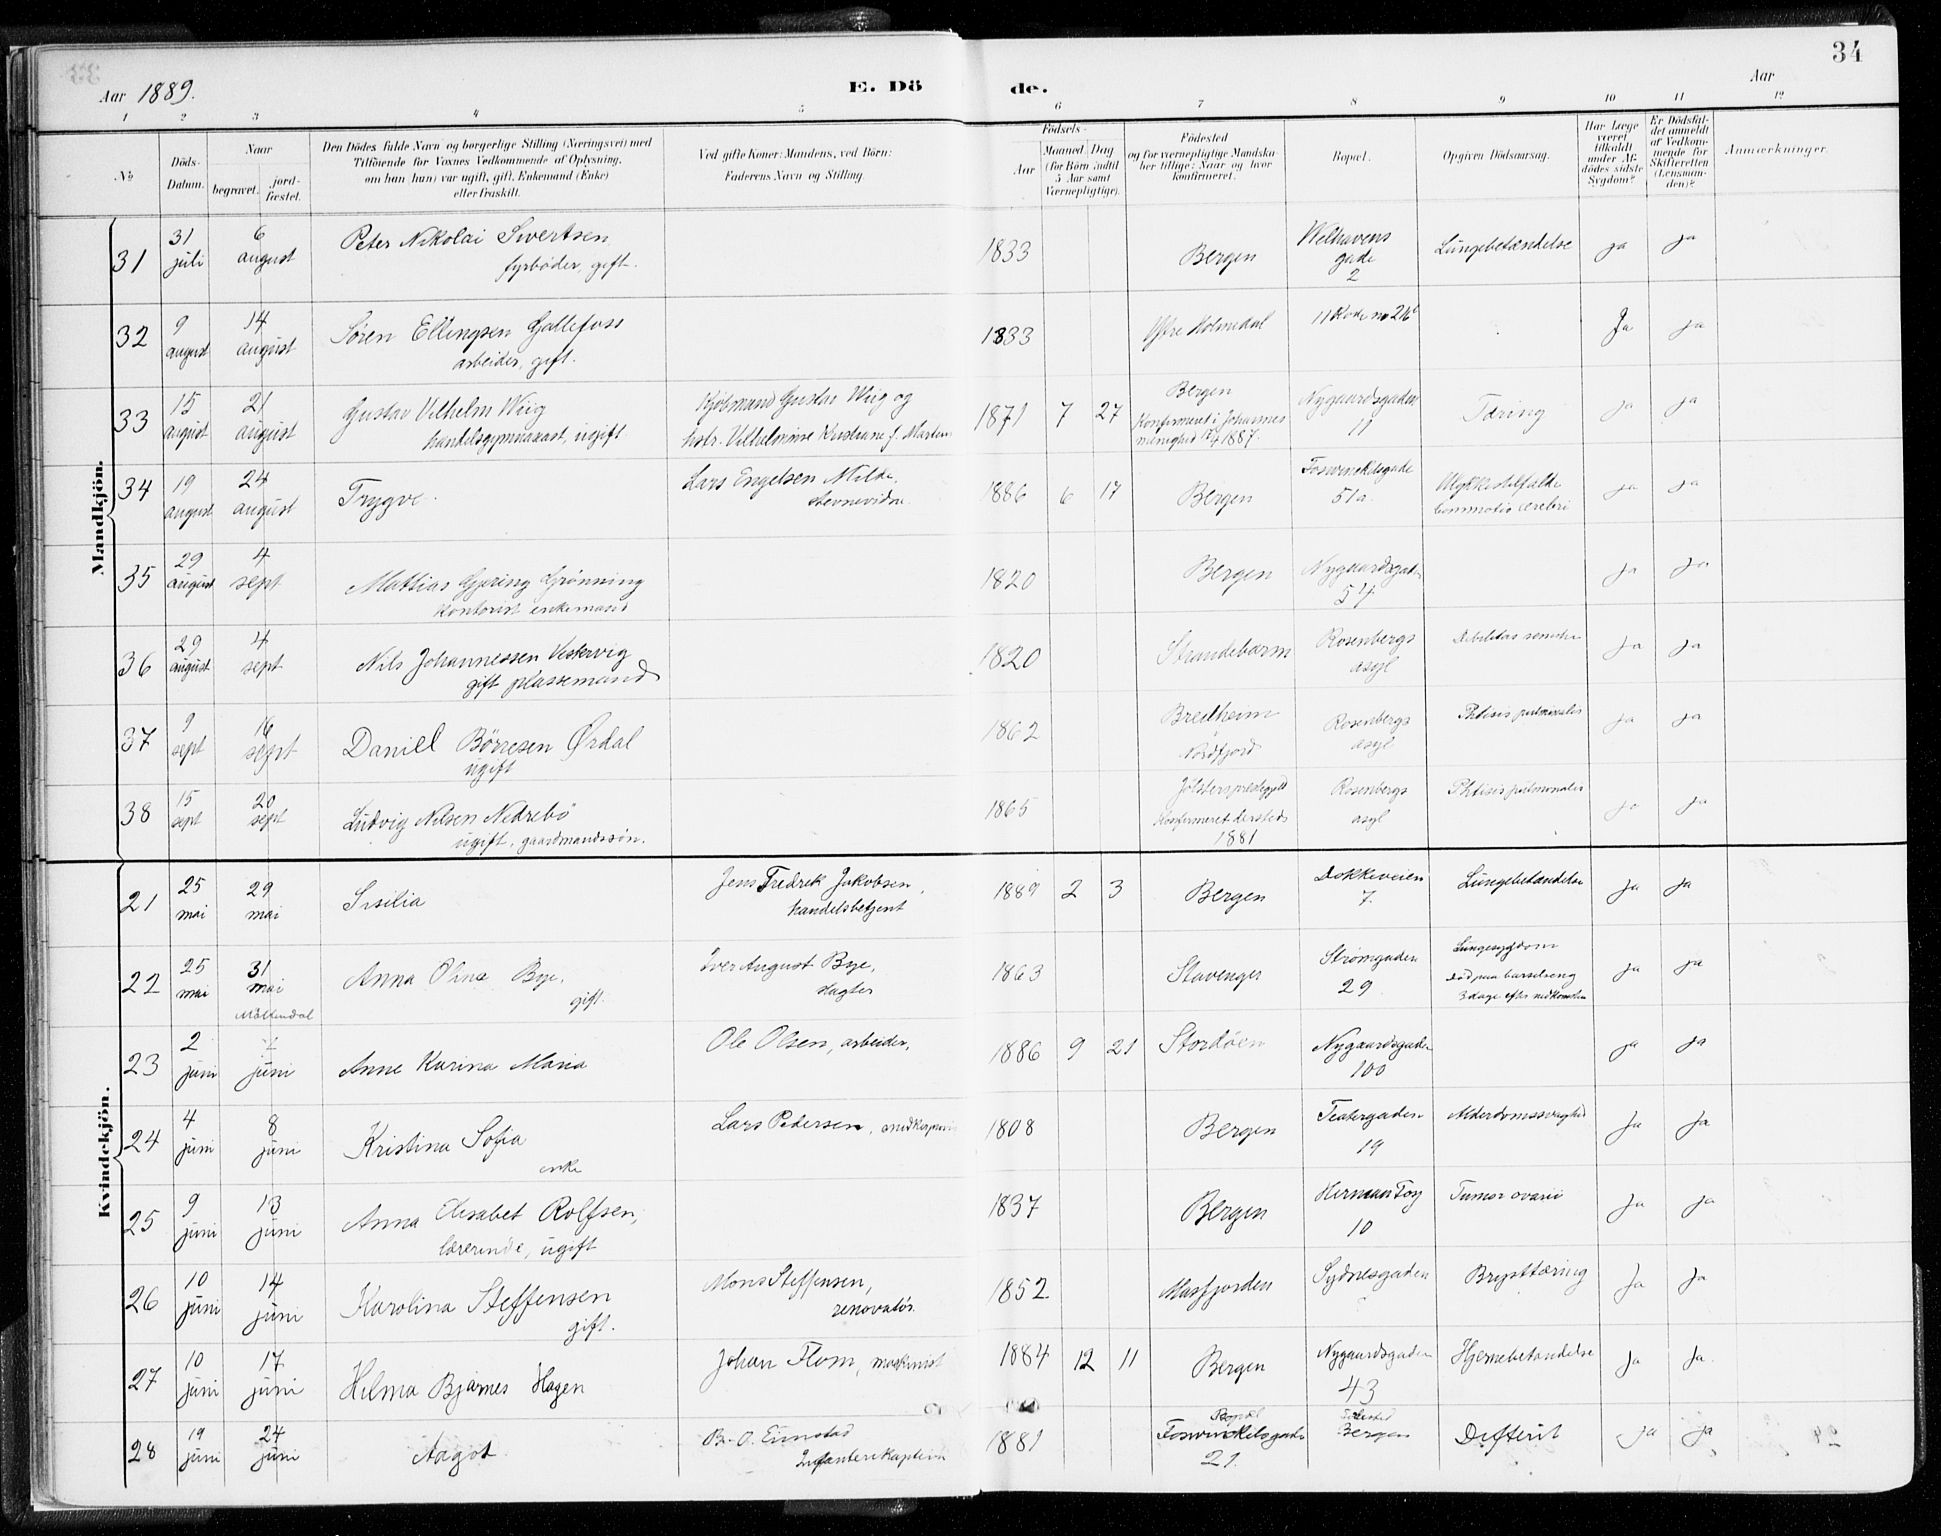 34
Aar 1889.
E. Dö de.
Aar
1 2 3 4 5 6 7 8 9 10 11 12
No
Döds-
Datum.
Naar
begravet.
jord-
fæstet.
Den Dödes fulde Navn og borgerlige Stilling (Næringsvei) med
Tilföiende for Voxnes Vedkommende af Oplysning,
om han (hun) var ugift, gift, Enkemand (Enke)
eller fraskilt.
Ved gifte Koner: Mandens, ved Börn:
Faderens Navn og Stilling.
Födsels-
Aar
Maaned Dag
(for Börn indtil
5 Aar samt
Værnepligtige).
Födested
og for værnepligtige Mandska-
ber tillige: Naar og hvor
konfirmeret.
Bopæl.
Opgiven Dödsaarsag.
Har Læge
været
tilkaldt
under Af-
dödes sidste
Sygdom?
Er Dödsfal-
det anmeldt
af Vedkom-
mende for
Skifteretten
(Lensman-
den)?
Anmærkninger.
Mandkjön.
31
31 juli
6 august
Peter Nikolai Sivertsen,
fyrbøder, gift.
1833
Bergen
Welhavens
gade
2
Lungebetændelse
ja
ja
32
9 august
14 august
Søren Ellingsen Gallefoss
arbeider, gift.
1833
Ytre Holmedal
11 Rode no
Ja
ja
33
15 august
21 august
Gustav Vilhelm Wiig
handelsgymnasiast, ugift
Kjøbmand Gustav Wiig og
hstr. Vilhelmine Kristiane f. Martens
1871 7 27
Bergen
Konfirmeret i Johannes
menighed 1887.
Nygaardsgaden
11
Tæring
ja
ja
34
19 august
24 august
Trygve.
Lars Engelsen Milde,
stevnevidne
1886 6 17
Bergen
Foswinckelsgade
51a.
Ulykkestilfælde
Commotio cerebri
ja
ja
35
29 august
4 sept
Mattias Gjering Grønning
kontorist enkemand
1820
Bergen
Nygaardsgaden
54
ja
ja
36
29 august
4 sept
Nils Johannessen Vestervig
gift plassemand
1820
Strandebarm
Rosenbergs
asyl
Debilitas senilis
ja
ja
37
9 sept
16 sept
Daniel Børresen Ørdal
ugift
1862
Breilheim
Nordfjord
Rosenbergs
asyl
Phtisis pulmonalis
ja
ja
38
15 sept
20 sept
Ludvig Nilsen Nedrebø
ugift, gaardmandssøn.
1865
Jølsters prestegjeld
Konfirmeret dersteds
1881
Rosenbergs
asyl
Phtisis pulmonalis
ja
ja
Kvindekjön.
21
25 mai
29 mai
Sisilia
Jens Fredrik Jakobsen,
handelsbetjent
1889 2 3
Bergen
Dokkeveien
7.
Lungebetændelse
ja
ja
22
25 mai
31 mai
Møllendal
Anna Olina Bye,
gift.
Iver August Bye,
slagter
1863
Stavanger
Strømgaden
29
Lungesygdom
Død paa barselseng
3 dage efter nedkomsten
ja
ja
23
2 juni
juni
Anne Karina Maria
Ole Olsen, arbeider,
1886 9 21
Stordøen
Nygaardsgaden
100
ja
ja
24
4 juni
8 juni
Kristina Sofia
enke
Lars Pedersen,
1808
Bergen
Teatergaden
19
Alderdomssvaghed
Ja
Ja
25
9 juni
13 juni
Anna Elisabet Rolfsen,
lærerinde, ugift
1837
Bergen
Herman Foss
10
Tumor ovarii
Ja
Ja
26
10 juni
14 juni
Karolina Steffensen
gift.
Mons Steffensen,
renovatør
1852
Masfjorden
Sydnesgaden
Brysttæring
Ja
Ja
27
10 juni
17 juni
Hilma Bjarnes Hagen
Johan Flom, maskinist
1884 12 11
Bergen
Nygaardsgaden
43
Hjernebetændelse
Ja
Ja.
28
19 juni
24 juni
Aagot
B. O. Eimstad
Infanterikaptein
1881
Bopæl
Foswinckelsgade
21.
Fødested
Bergen
Difterit
Ja
Ja